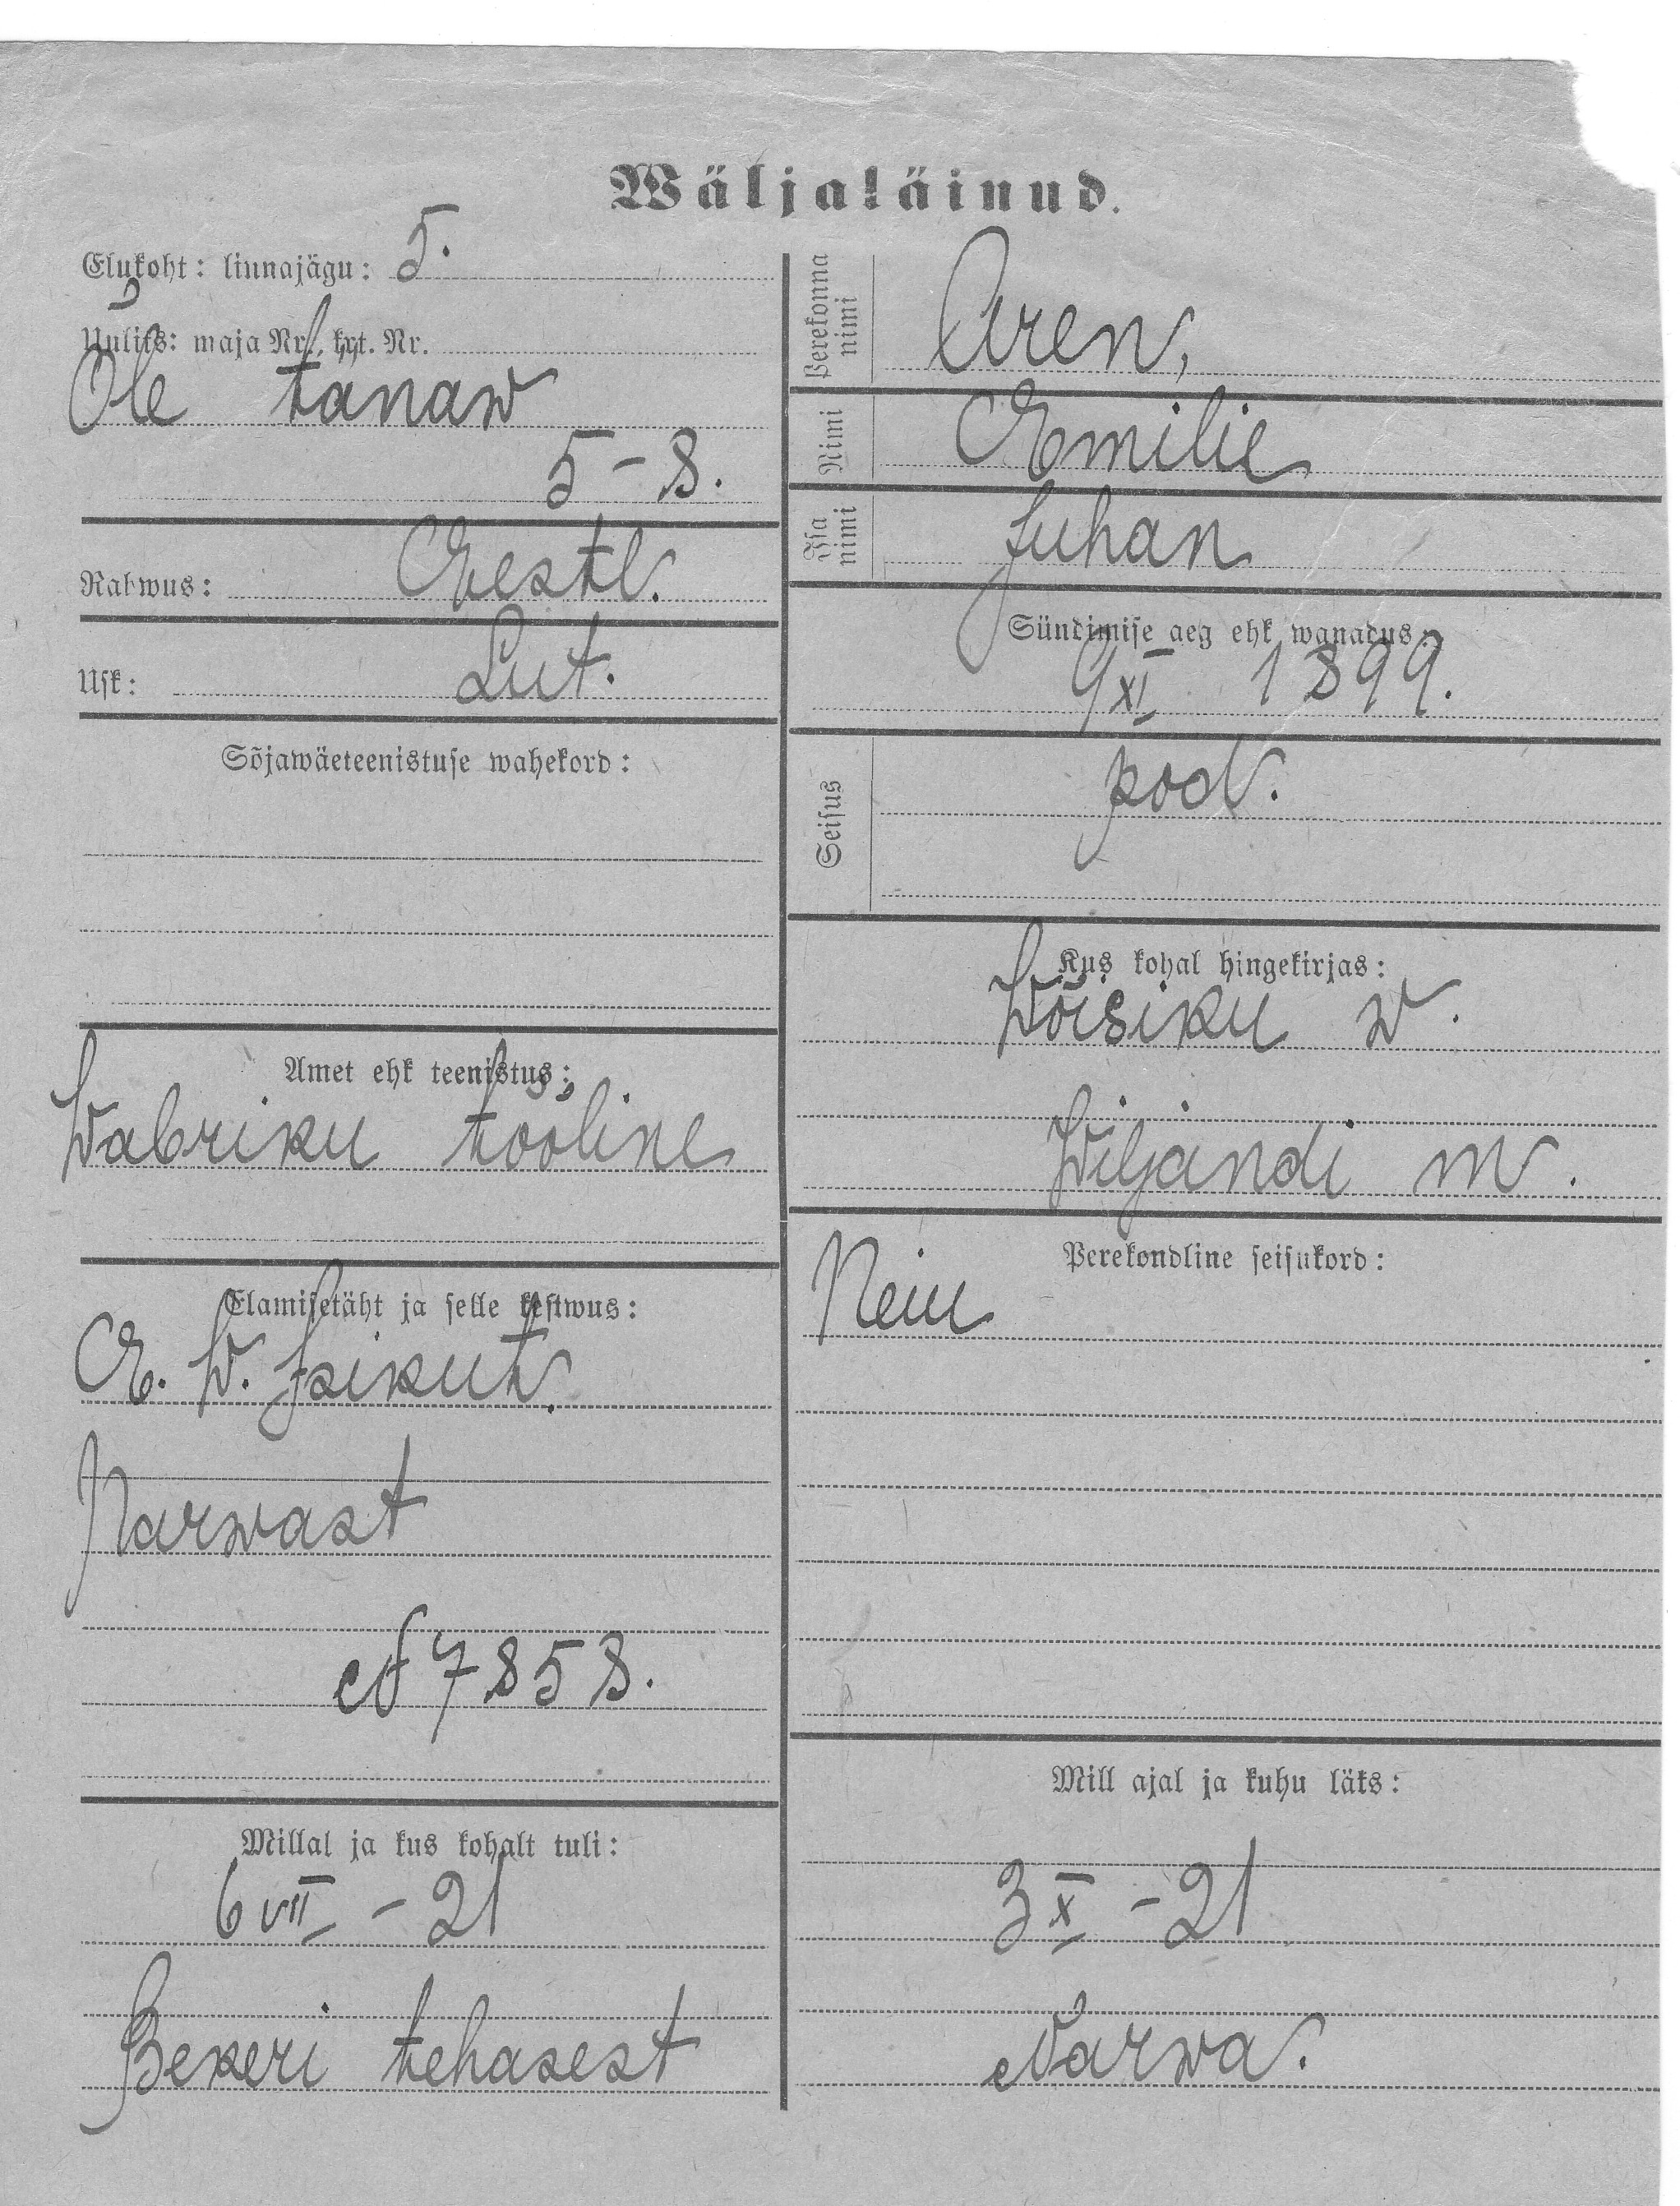 Wäljaläinud.
Elukoht: linnajägu: 5.
Uulits: maja Nr., krt. Nr.
Õle tänaw
5-8.
Rahwus: Eestl.
Usk: Lut.
Sõjawäeteenistuse wahekord:
Amet ehk teenistus:
Wabriku tööline
Elamisetäht ja selle kestwus:
E. W. Isikut.
Narwast
N 7858.
Millal ja kus kohalt tuli:
6 VII - 21
Bekeri tehasest
Perekonna nimi
Aren,
Nimi
Emilie
Isa nimi
Juhan
Sündimise aeg ehk wanadus:
9 XI 1899.
Seisus
Kus kohal hingekirjas:
Wõisiku w.
Wiljandi m.
Perekondline seisukord:
Neiu
Mill ajal ja kuhu läks:
3 X - 21
Narwa.